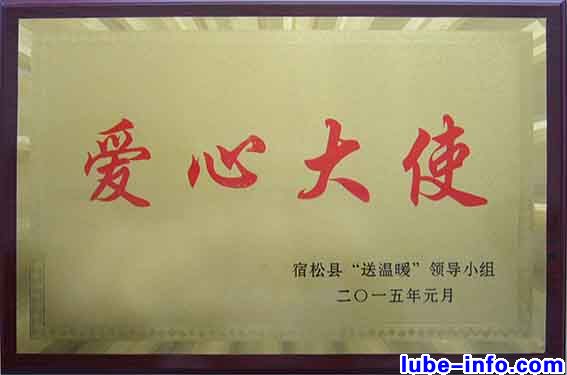 爱心大使
宿松县“送温暖”领导小组
二〇一五年元月
lube-info.com